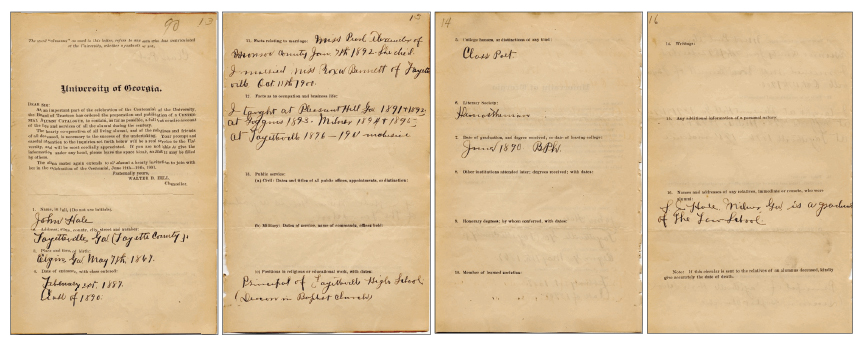 90 13
The word "alumnus" as used in this letter, refers to any one who has matriculated
at the University, whether graduate or not.
University of Georgia.
DEAR SIR:
As an important part of the celebration of the Centennial of the University,
the Board of Trustees has ordered the preparation and publication of a CENTEN-
NIAL ALUMNI CATALOGUE, to contain, as far as possible, a full and accurate account
of the life and services of all the alumni during the century.
The hearty co-operation of all living alumni, and of the relatives and friends
of all deceased, is necessary to the success of the undertaking. Your prompt and
careful attention to the inquiries set forth below will be a real service to the Uni-
versity and will be most cordially appreciated. If you are not able to give the
information under any head, please leave the space blank, so that it may be filled
by others.
of the Celebration of the Centennial, June 12th-19th, 1901.
Fraternally yours,
WALTER B. HILL,
Chancellor.
1. Name, in full, (Do not use initials).
John Hale
Address: (City, county, state, street and number)
Fayetteville, Ga (Fayette County).
Place and time of birth:
Elgin Ga May 7th 1867.
4. Date of entrance, with class entered:
February 1st, 1887.
Class of 1890.
11. Facts relating to marriage: Miss Alexander of
County Jan 7th 1892. She died.
I married Miss Rosa Bennett of Fayette
ville Oct 11th 1900.
12. Facts as to occupation and business life:
I taught at Pleasant Hill Ga 1891 & 1892
at 1893- Milner 1894 & 1895-
at Fayetteville 1896 - 1901 inclusive
13. Public service:
(a) Civil: Dates and titles of all public offices, appointments, or distinctions:
(b) Military: Dates of service, name of commands, offices held:
(c) Positions in religious or educational work, with dates:
Principal of Fayetteville High School
(Deacon in Baptist Church)
14
5. College honors, or distinctions of any kind:
Class Poet
6. Literary Society:
Demosthenian
7. Date of graduation, and degree received, or date of leaving college:
June 1890 - B.Ph.
8. Other institutions attended later; degrees received; with dates:
9. Honorary degrees; by whom conferred, with dates:
10. Member of learned societies:
16
14. Writings:
15. Any additional information of a personal nature:
16. Names and addresses of any relatives, immediate or remote, who were
alumni:
Hale Milner Ga is a graduate
of the Law School
Note: If this circular is sent to the relatives of an alumnus deceased, kindly
give accurately the date of death.